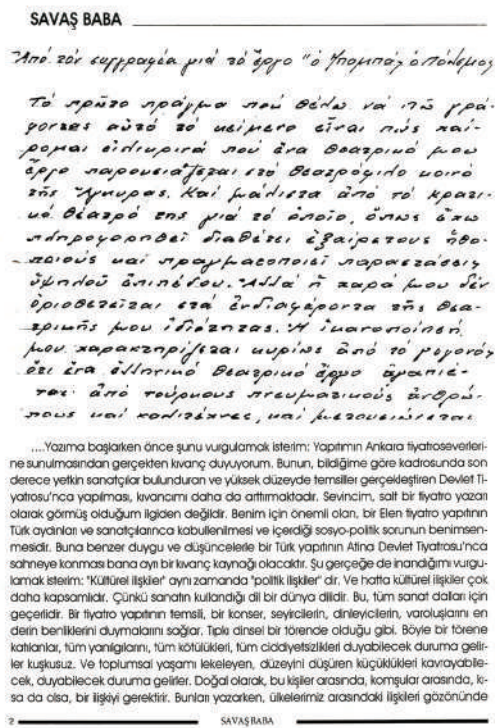 SAVAŞ BABA
Ἀπό τόν συγγραφέα γιά τό ἔργο "ὁ Μπαμπάς ὁ πόλεμος
Τό πρῶτο πράγμα πού θέλω νά πῶ γρά-
φοντας αὐτό τό κείμενο εἶναι πώς χαί-
ρομαι εἰλικρινά πού ἕνα θεατρικό μου
ἔργο παρουσιάζεται στό θεατρόφιλο κοινό
τῆς Ἄγκυρας. Καί μάλιστα ἀπό τό κρατι-
κό θέατρό της γιά τό ὁποῖο, ὅπως ἔχω
πληροφορηθεῖ διαθέτει ἐξαίρετους ἠθο-
ποιούς καί πραγματοποιεῖ παραστάσεις
ὑψηλοῦ ἐπιπέδου. Ἀλλά ἡ χαρά μου δέν
ὁριοθετεῖται στά ἐνδιαφέροντα τῆς θεα-
τρικῆς μου ἰδιότητας. Ἡ ἱκανοποίησή
μου χαρακτηρίζεται κυρίως ἀπό τό γεγονός
ὅτι ἕνα ἑλληνικό θεατρικό ἔργο ἀγαπιέ-
ται ἀπό τούρκους πνευματικούς ἀνθρώ-
πους καί καλλιτέχνες, καί μετουσιώνεται
....Yazıma başlarken önce şunu vurgulamak isterim: Yapıtımın Ankara tiyatroseverleri-
ne sunulmasından gerçekten kıvanç duyuyorum. Bunun, bildiğime göre kadrosunda son
derece yetkin sanatçılar bulunduran ve yüksek düzeyde temsiller gerçekleştiren Devlet Ti-
yatrosu'nca yapılması, kıvancımı daha da arttırmaktadır. Sevincim, salt bir tiyatro yazarı
olarak görmüş olduğum ilgiden değildir. Benim için önemli olan, bir Elen tiyatro yapıtının
Türk aydınları ve sanatçılarınca kabullenilmesi ve içerdiği sosyo-politik sorunun benimsen-
mesidir. Buna benzer duygu ve düşüncelerle bir Türk yapıtının Atina Devlet Tiyatrosu'nca
sahneye konması bana ayrı bir kıvanç kaynağı olacaktır. Şu gerçeğe de inandığımı vurgu-
lamak isterim: "Kültürel ilişkiler" aynı zamanda "politik ilişkiler" dir. Ve hatta kültürel ilişkiler çok
daha kapsamlıdır. Çünkü sanatın kullandığı dil bir dünya dilidir. Bu, tüm sanat dalları için
geçerlidir. Bir tiyatro yapıtının temsili, bir konser, seyircilerin, dinleyicilerin, varoluşlarını en
derin benliklerini duymalarını sağlar. Tıpkı dinsel bir törende olduğu gibi. Böyle bir törene
katılanlar, tüm yanılgılarını, tüm kötülükleri, tüm ciddiyetsizlikleri duyabilecek duruma gelir-
ler kuşkusuz. Ve toplumsal yaşamı lekeleyen, düzeyini düşüren küçüklükleri kavrayabile-
cek, duyabilecek duruma gelirler. Doğal olarak, bu kişiler arasında, komşular arasında, kı-
sa da olsa, bir ilişkiyi gerektirir. Bunları yazarken, ülkelerimiz arasındaki ilişkileri gözönünde
2 SAVAŞ BABA